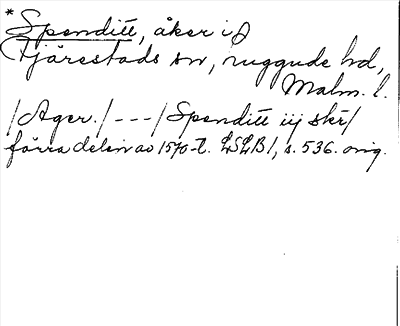 *Spenditt, åker i
Fjärestads sn, Luggude hd,
Malm. l.
/Ager./---/Spenditt iij skr/
förra delen av 1570-t. LSLB1, s. 536. orig.